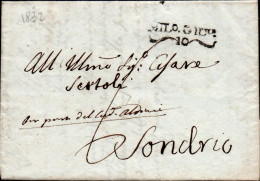 1832
MILO. GIUG.
10
All Illmo Sigr. Cesare
Sertoli
Per parte del
Sondrio